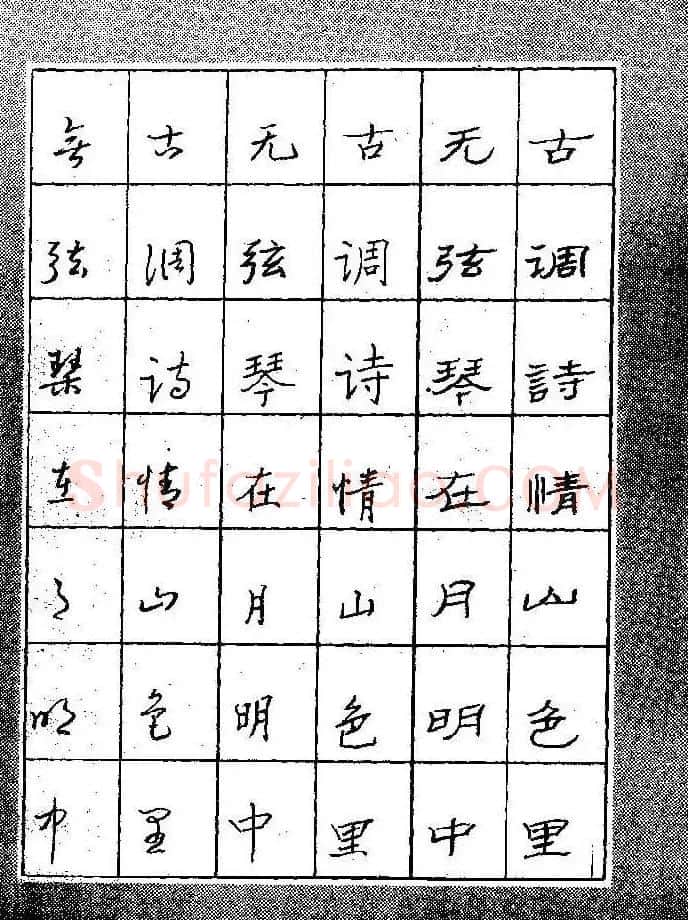 古调詩情山色里
无弦琴在月明中
古调诗情山色里
无弦琴在月明中
古调诗情山色里
無弦琴在月明中
Shufaziliao.COM